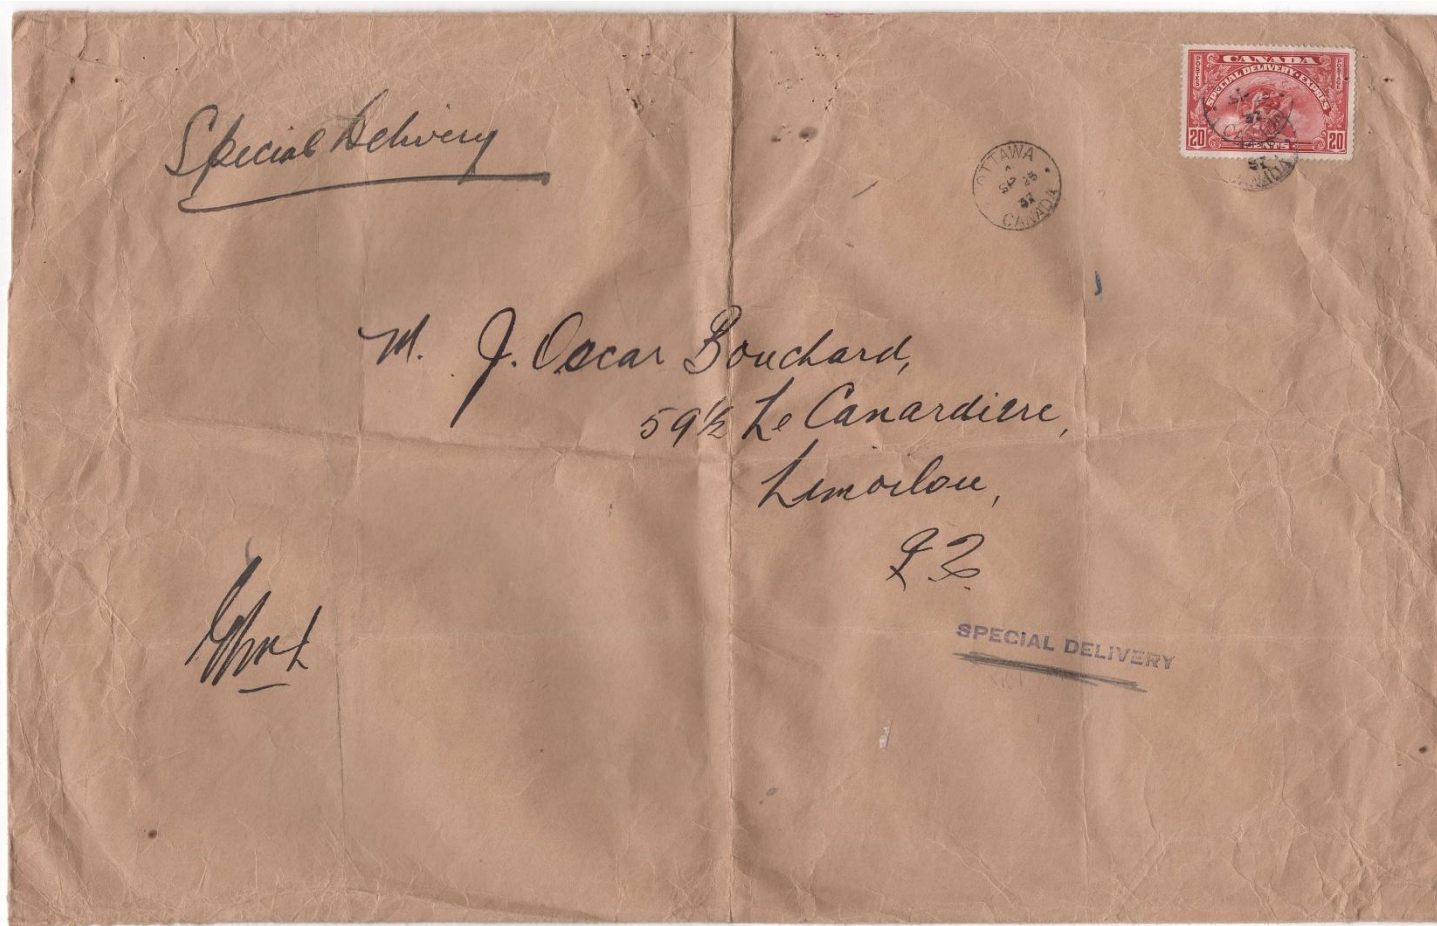 Special Delivery
CANADA
POSTES
POSTAGE
SPECIAL DELIVERY·EXPRÈS
20 CENTS 20
OTTAWA
SP 25
37
CANADA
37
CANADA
M. J. Oscar Bouchard,
59 ½ Le Canardiere,
Limoilou,
P. Q.
SPECIAL DELIVERY